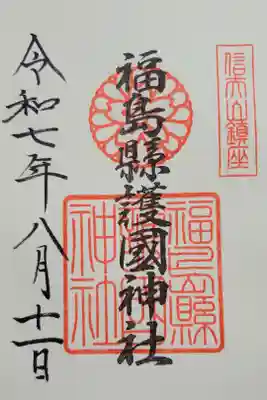 信夫山鎮座
福島縣護國神社
福島縣護國神社
令和七年八月十一日